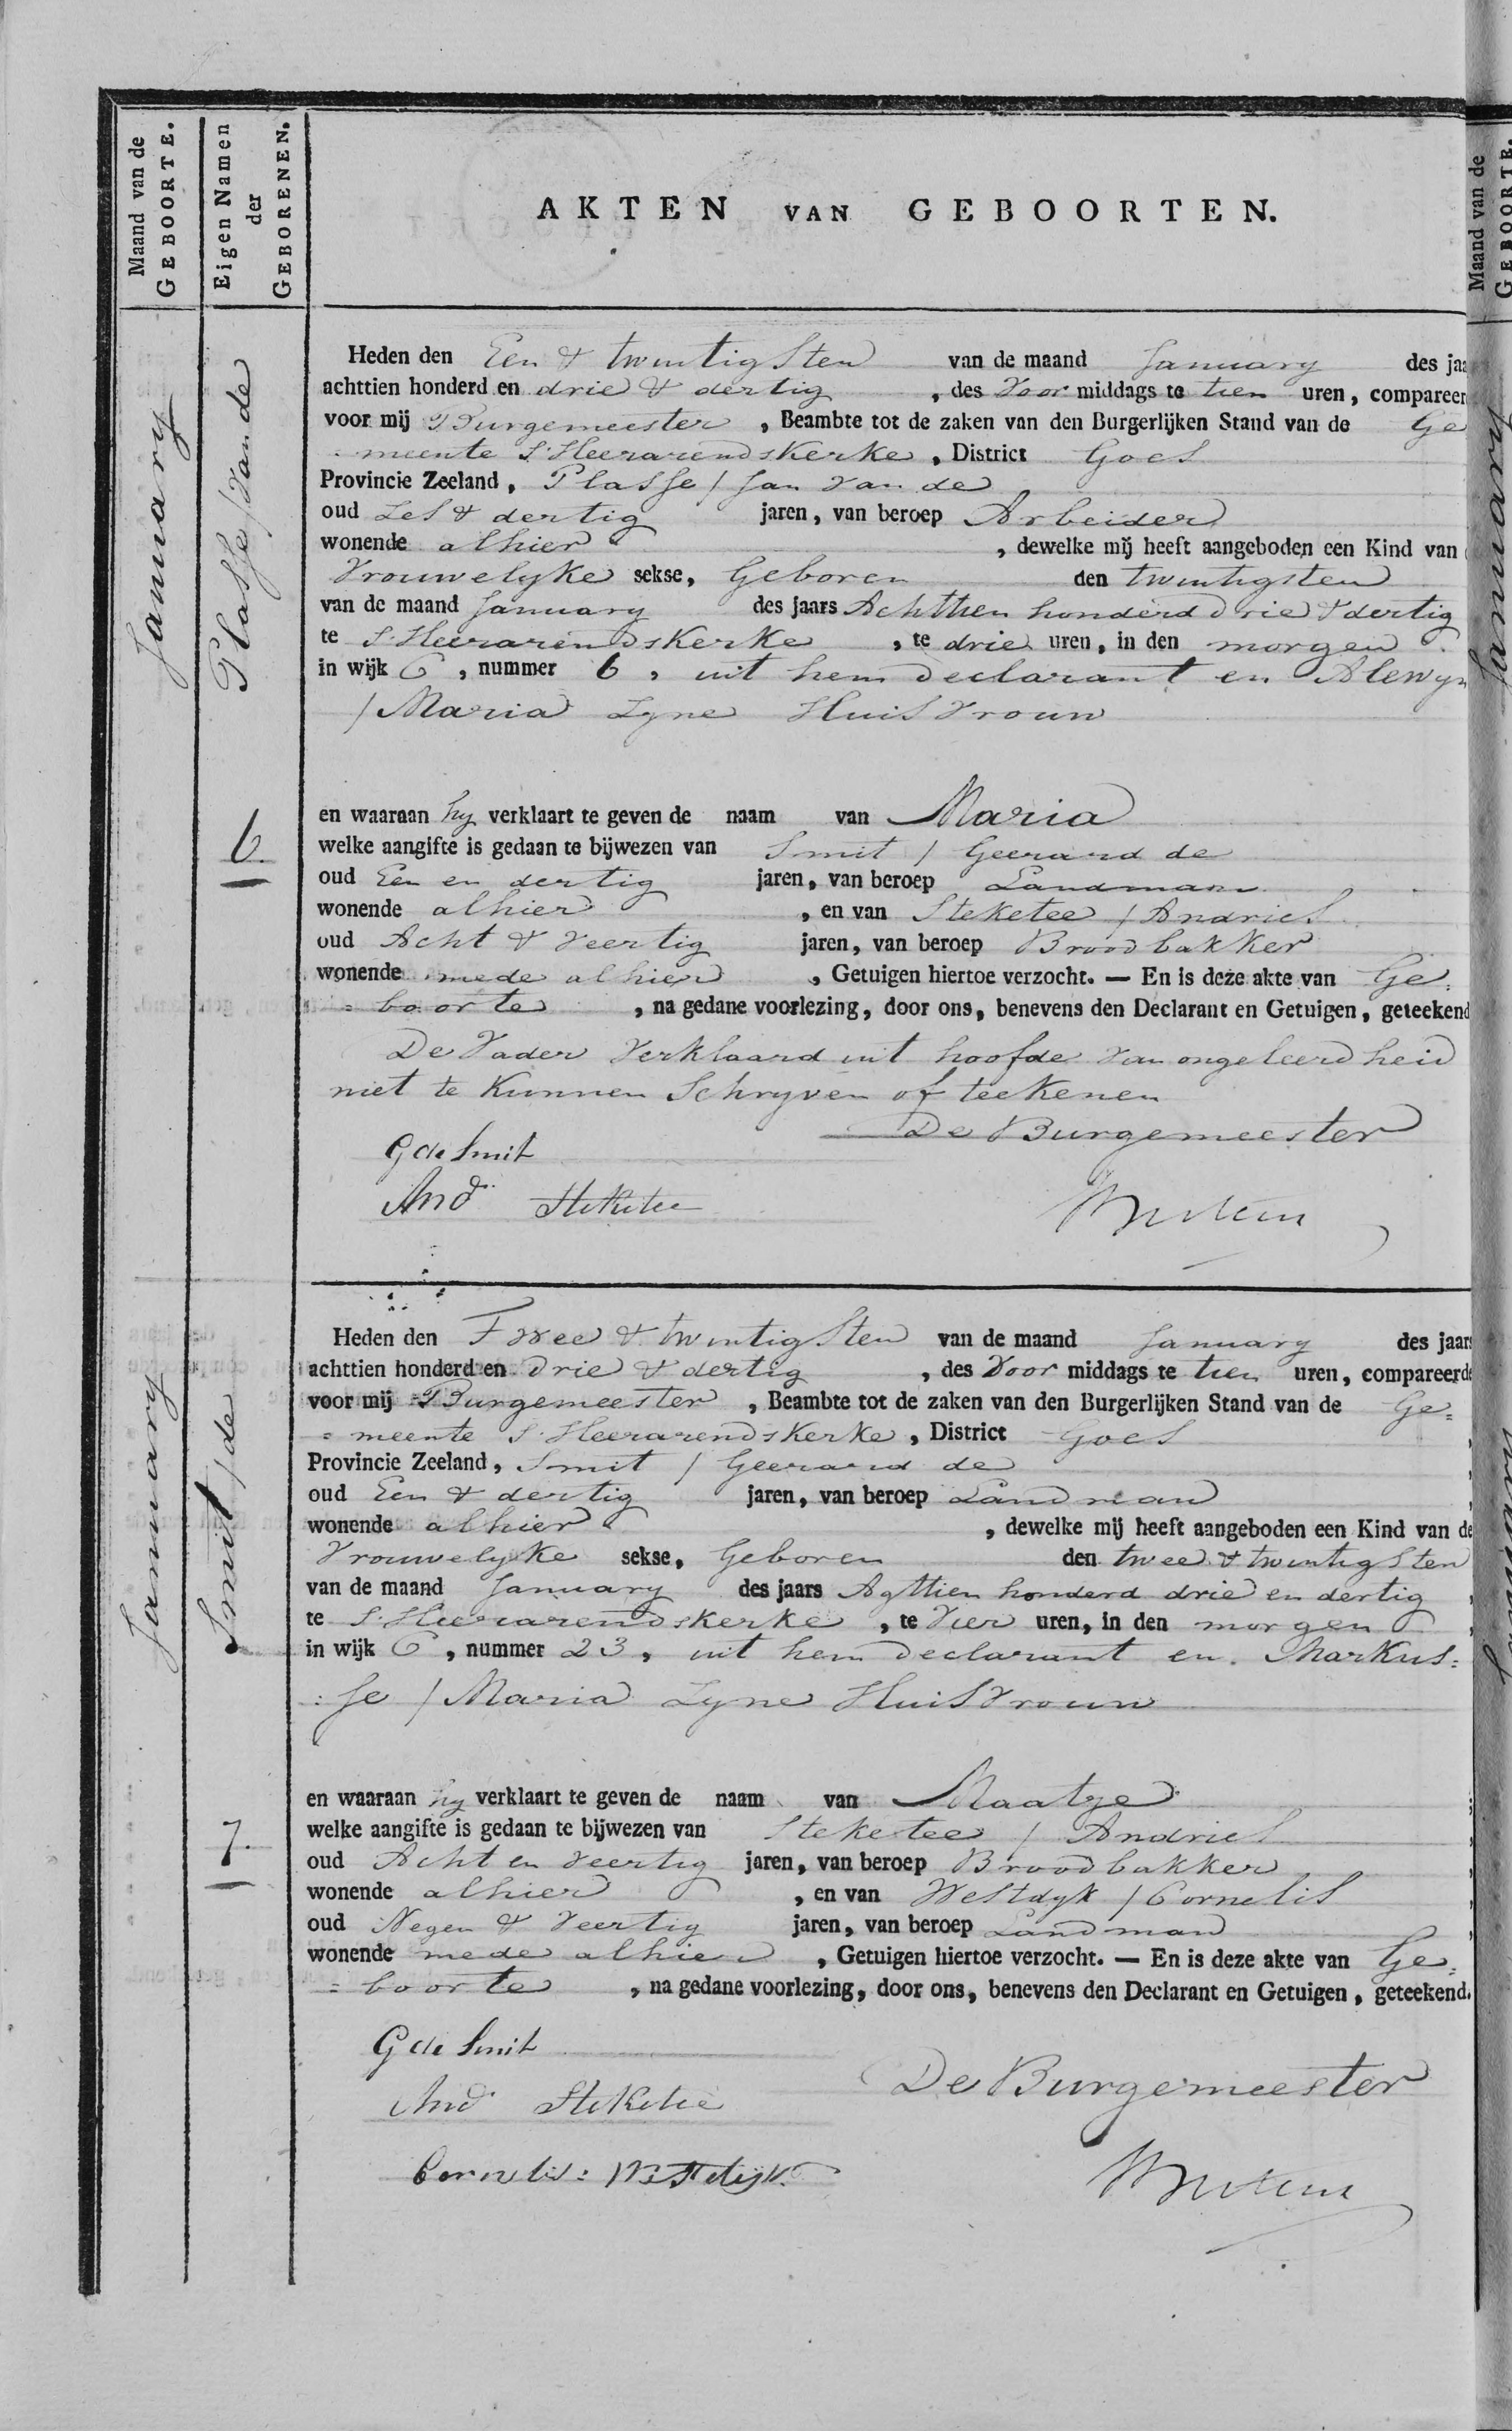 Maand van de
GEBOORTE.
Eigen Namen
der
GEBORENEN.
AKTEN VAN GEBOORTEN.
January
Plasse / van de
6.
Heden den Een & twintigsten van de maand January des jaa
achttien honderd en drie & dertig , des Voor middags te tien uren, compareer
voor mij Burgemeester , Beambte tot de zaken van den Burgerlijken Stand van de Ge
meente S: Heerarendskerke , District Goes
Provincie Zeeland, Plasse / Jan van de
oud Zes & dertig jaren, van beroep Arbeider
wonende alhier , dewelke mij heeft aangeboden een Kind van
Vrouwelyke sekse, Geboren den twintigsten
van de maand January des jaars Achttien honderd drie & dertig
te S: Heerarendskerke , te drie uren, in den morgen
in wijk C , nummer 6 , uit hem declarant en Alewyn
/ Maria Zyne Huisvrouw
en waaraan hy verklaart te geven de naam van Maria
welke aangifte is gedaan te bijwezen van Smit / Geerard de
oud Een en dertig jaren, van beroep Landman
wonende alhier , en van Steketee / Andries
oud Acht & Veertig jaren, van beroep Broodbakker
wonende mede alhier , Getuigen hiertoe verzocht. — En is deze akte van Ge:
= boorte , na gedane voorlezing, door ons, benevens den Declarant en Getuigen, geteekend
De Vader Verklaard uit hoofde van ongeleerdheid
niet te Kunnen Schryven of teekenen
De Burgemeester
G de Smit
And Steketee
January
Smit / de
7.
Heden den Twee & twintigsten van de maand January des jaars
achttien honderd en drie & dertig , des Voor middags te tien uren, compareerde
voor mij Burgemeester , Beambte tot de zaken van den Burgerlijken Stand van de Ge=
= meente S: Heerarendskerke , District Goes
Provincie Zeeland, Smit / Geerard de
oud Een & dertig jaren, van beroep Landman
wonende alhier , dewelke mij heeft aangeboden een Kind van de
Vrouwelyke sekse, Geboren den twee & twintigsten
van de maand January des jaars Agttien honderd drie en dertig
te S: Heerarendskerke , te Vier uren, in den morgen
in wijk C , nummer 23 , uit hem declarant en Markus=
: se / Maria Zyne Huisvrouw
en waaraan hy verklaart te geven de naam van Maatje
welke aangifte is gedaan te bijwezen van Steketee / Andries
oud Acht en Veertig jaren, van beroep Broodbakker
wonende alhier , en van Westdyk / Cornelis
oud Negen & Veertig jaren, van beroep Landman
wonende mede alhier , Getuigen hiertoe verzocht. — En is deze akte van Ge=
= boorte , na gedane voorlezing, door ons, benevens den Declarant en Getuigen, geteekend.
G de Smit
De Burgemeester
And Steketee
Cornelis: Westdijk
Maand van de
GEBOORTE.
January